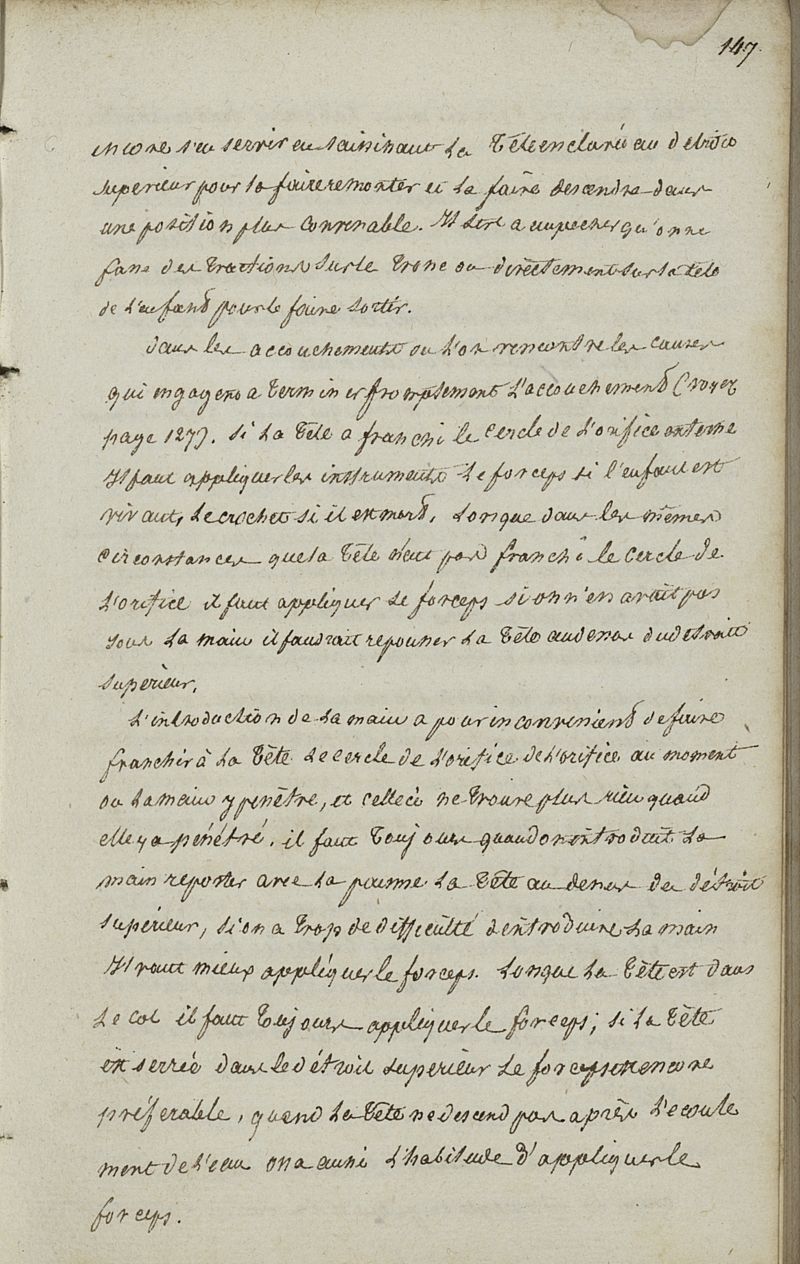 147.
encore s'en servir en saisissant la Tête enclavée au detroit
superieur pour la faire remonter et la faire descendre dans
une position plus convenable. Il sert a empecher qu'on ne
fasse des tractions sur le Tronc ou directement sur la tete
de l'enfand pour le faire sortir.
dans les accouchements ou l'on rencontre les causes
qui engagent a terminer promptement l'accouchement (voyez
page 127). si la Tête a franchi le cercle de l'orifice externe
Il faut appliquer les instruments le forceps si l'enfant est
vivant, le crochet si il est mord, lorsque dans les mêmes
circonstances que la tête n'aut pas franchi le cercle de
l'orifice il faut appliquer le forceps si on n'en avait pas
sous la main il faudrait repousser la Tête audessus du detroit
supèrieur,
L'introduction de la main a pour inconveniend de faire
franchir à la Tête le cercle de l'orifice de l'orifice au moment
ou la main y penêtre, et celle ci ne trouve plus rien quand
elle y a pénétré. il faut toujours quand on introduit la
main reporter avec la paume la tête au dessus du détroit
supérieur, si on a trop de difficulté d'introduire la main
Il vaut mieux appliquer le forceps. lorsque la Tête est dans
le col il faut toujours appliquer le forceps; si la tête
est serrée dans le détroit supèrieur le forceps est encore
préferable, quand la tête ne descend pas après l'ecoule
ment de l'eau on a aussi l'habitude d'appliquer le
forceps.